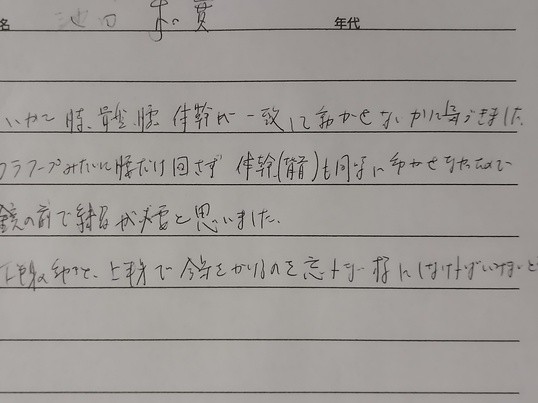 名 池田 和貴 年代
いかに膝、骨盤、腰、体幹が一致して動かせないかに気づきました。
フラフープみたいに腰だけ回さず 体幹(背骨)も同時に動かせなかったので
鏡の前で練習が必要と思いました。
下半身の動きと、上半身で を忘れない様にしなければいけないと